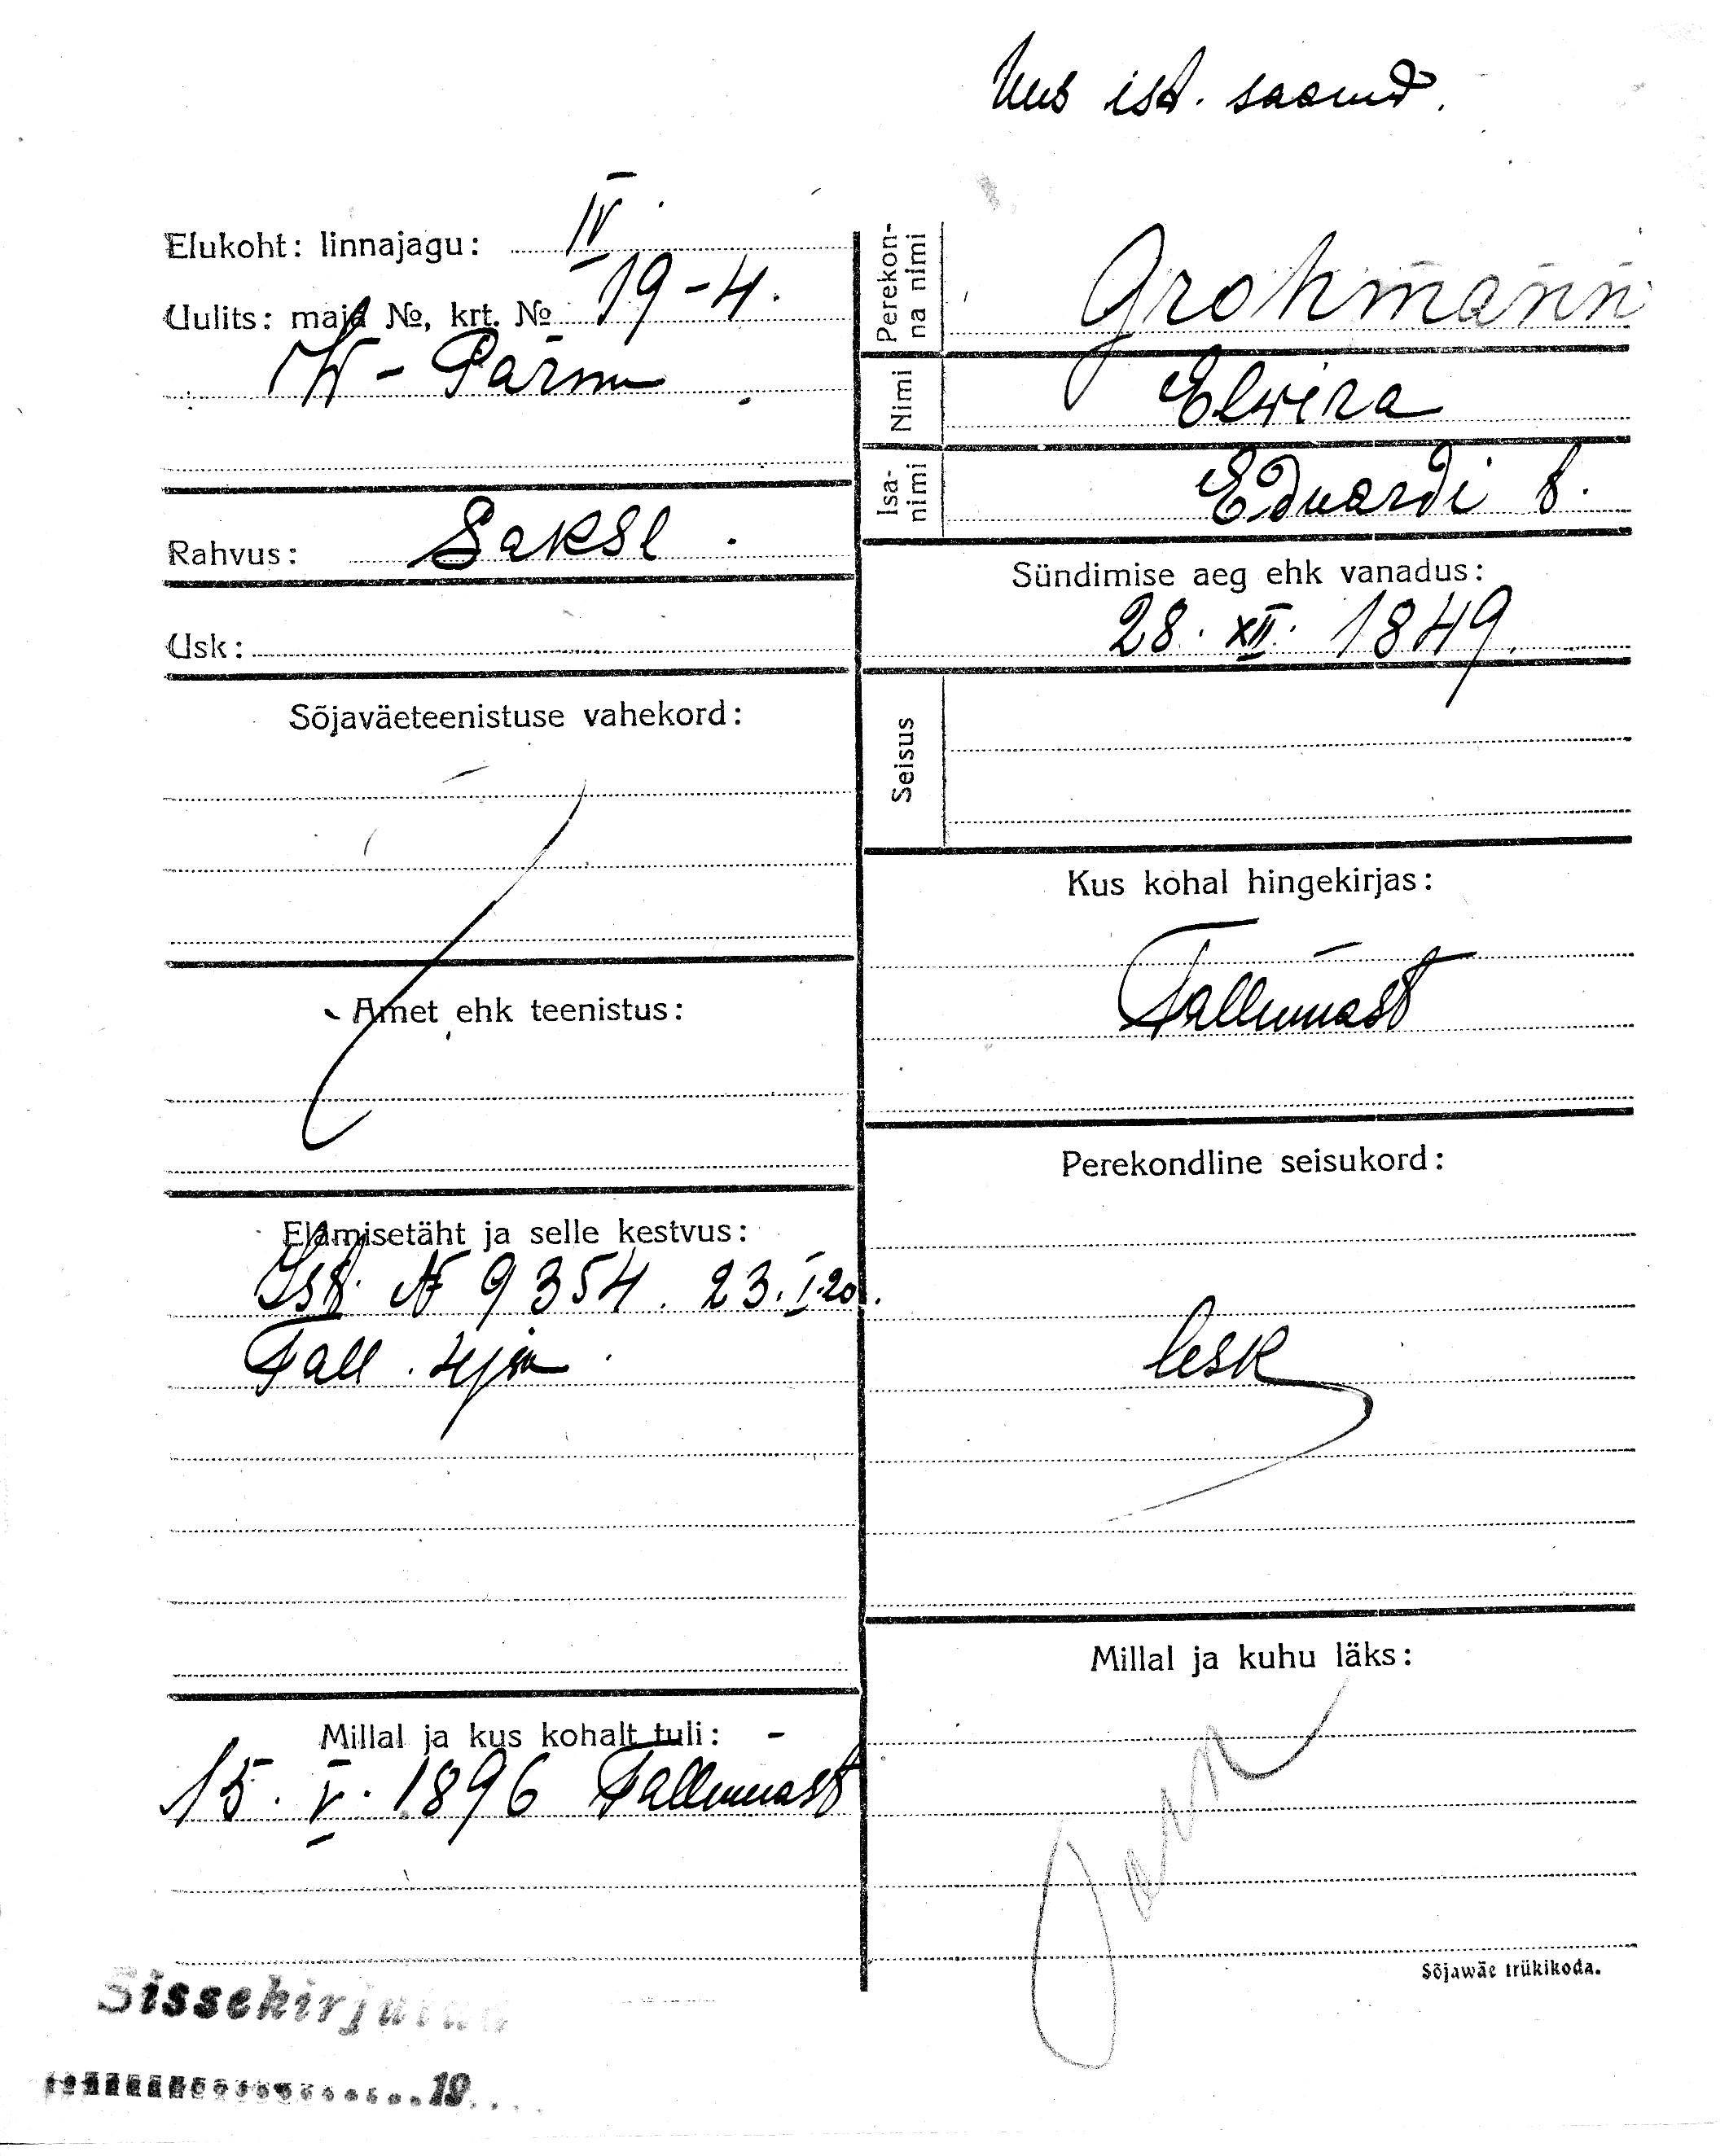 Uus isd. saanud.
Elukoht: linnajagu: IV
Uulits: maja №, krt. № 19-4.
W-Pärnu
Rahvus: Sakse.
Usk:
Sõjaväeteenistuse vahekord:
Amet ehk teenistus:
Elamisetäht ja selle kestvus:
Isd. № 9354. 23.I.20.
Tall.
Millal ja kus kohalt tuli:
15. V. 1896 Tallinnast
Perekon-
na nimi
Grohmann
Nimi
Elwira
Isa-
nimi
Eduardi t.
Sündimise aeg ehk vanadus:
28. XII. 1849.
Seisus
Kus kohal hingekirjas:
Tallinnast
Perekondline seisukord:
lesk
Millal ja kuhu läks:
Sõjawäe trükikoda.
Sissekirjutud
19